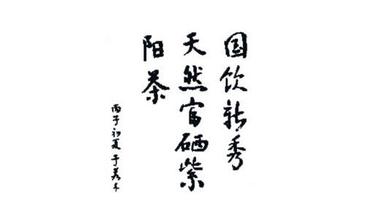 国饮新秀
天然富硒紫
阳茶
丙子初夏于若木